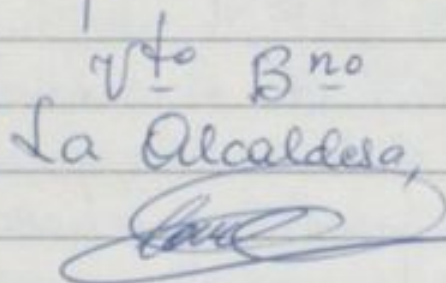 Vto Bno
La Alcaldesa,